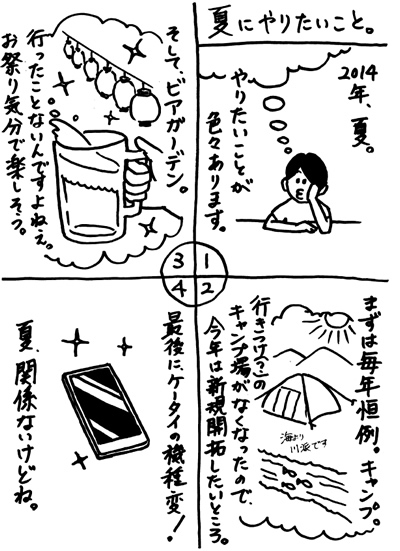 夏にやりたいこと。
2014
年、夏。
やりたいことが
色々あります。
1
2
まずは毎年恒例。キャンプ。
行きつけ(?)の
キャンプ場がなくなったので、
今年は新規開拓したいところ。
海より
川派です
3
そして、ビアガーデン。
行ったことないんですよねぇ。
お祭り気分で楽しそう。
4
最後に、ケータイの機種変!
夏、関係ないけどね。